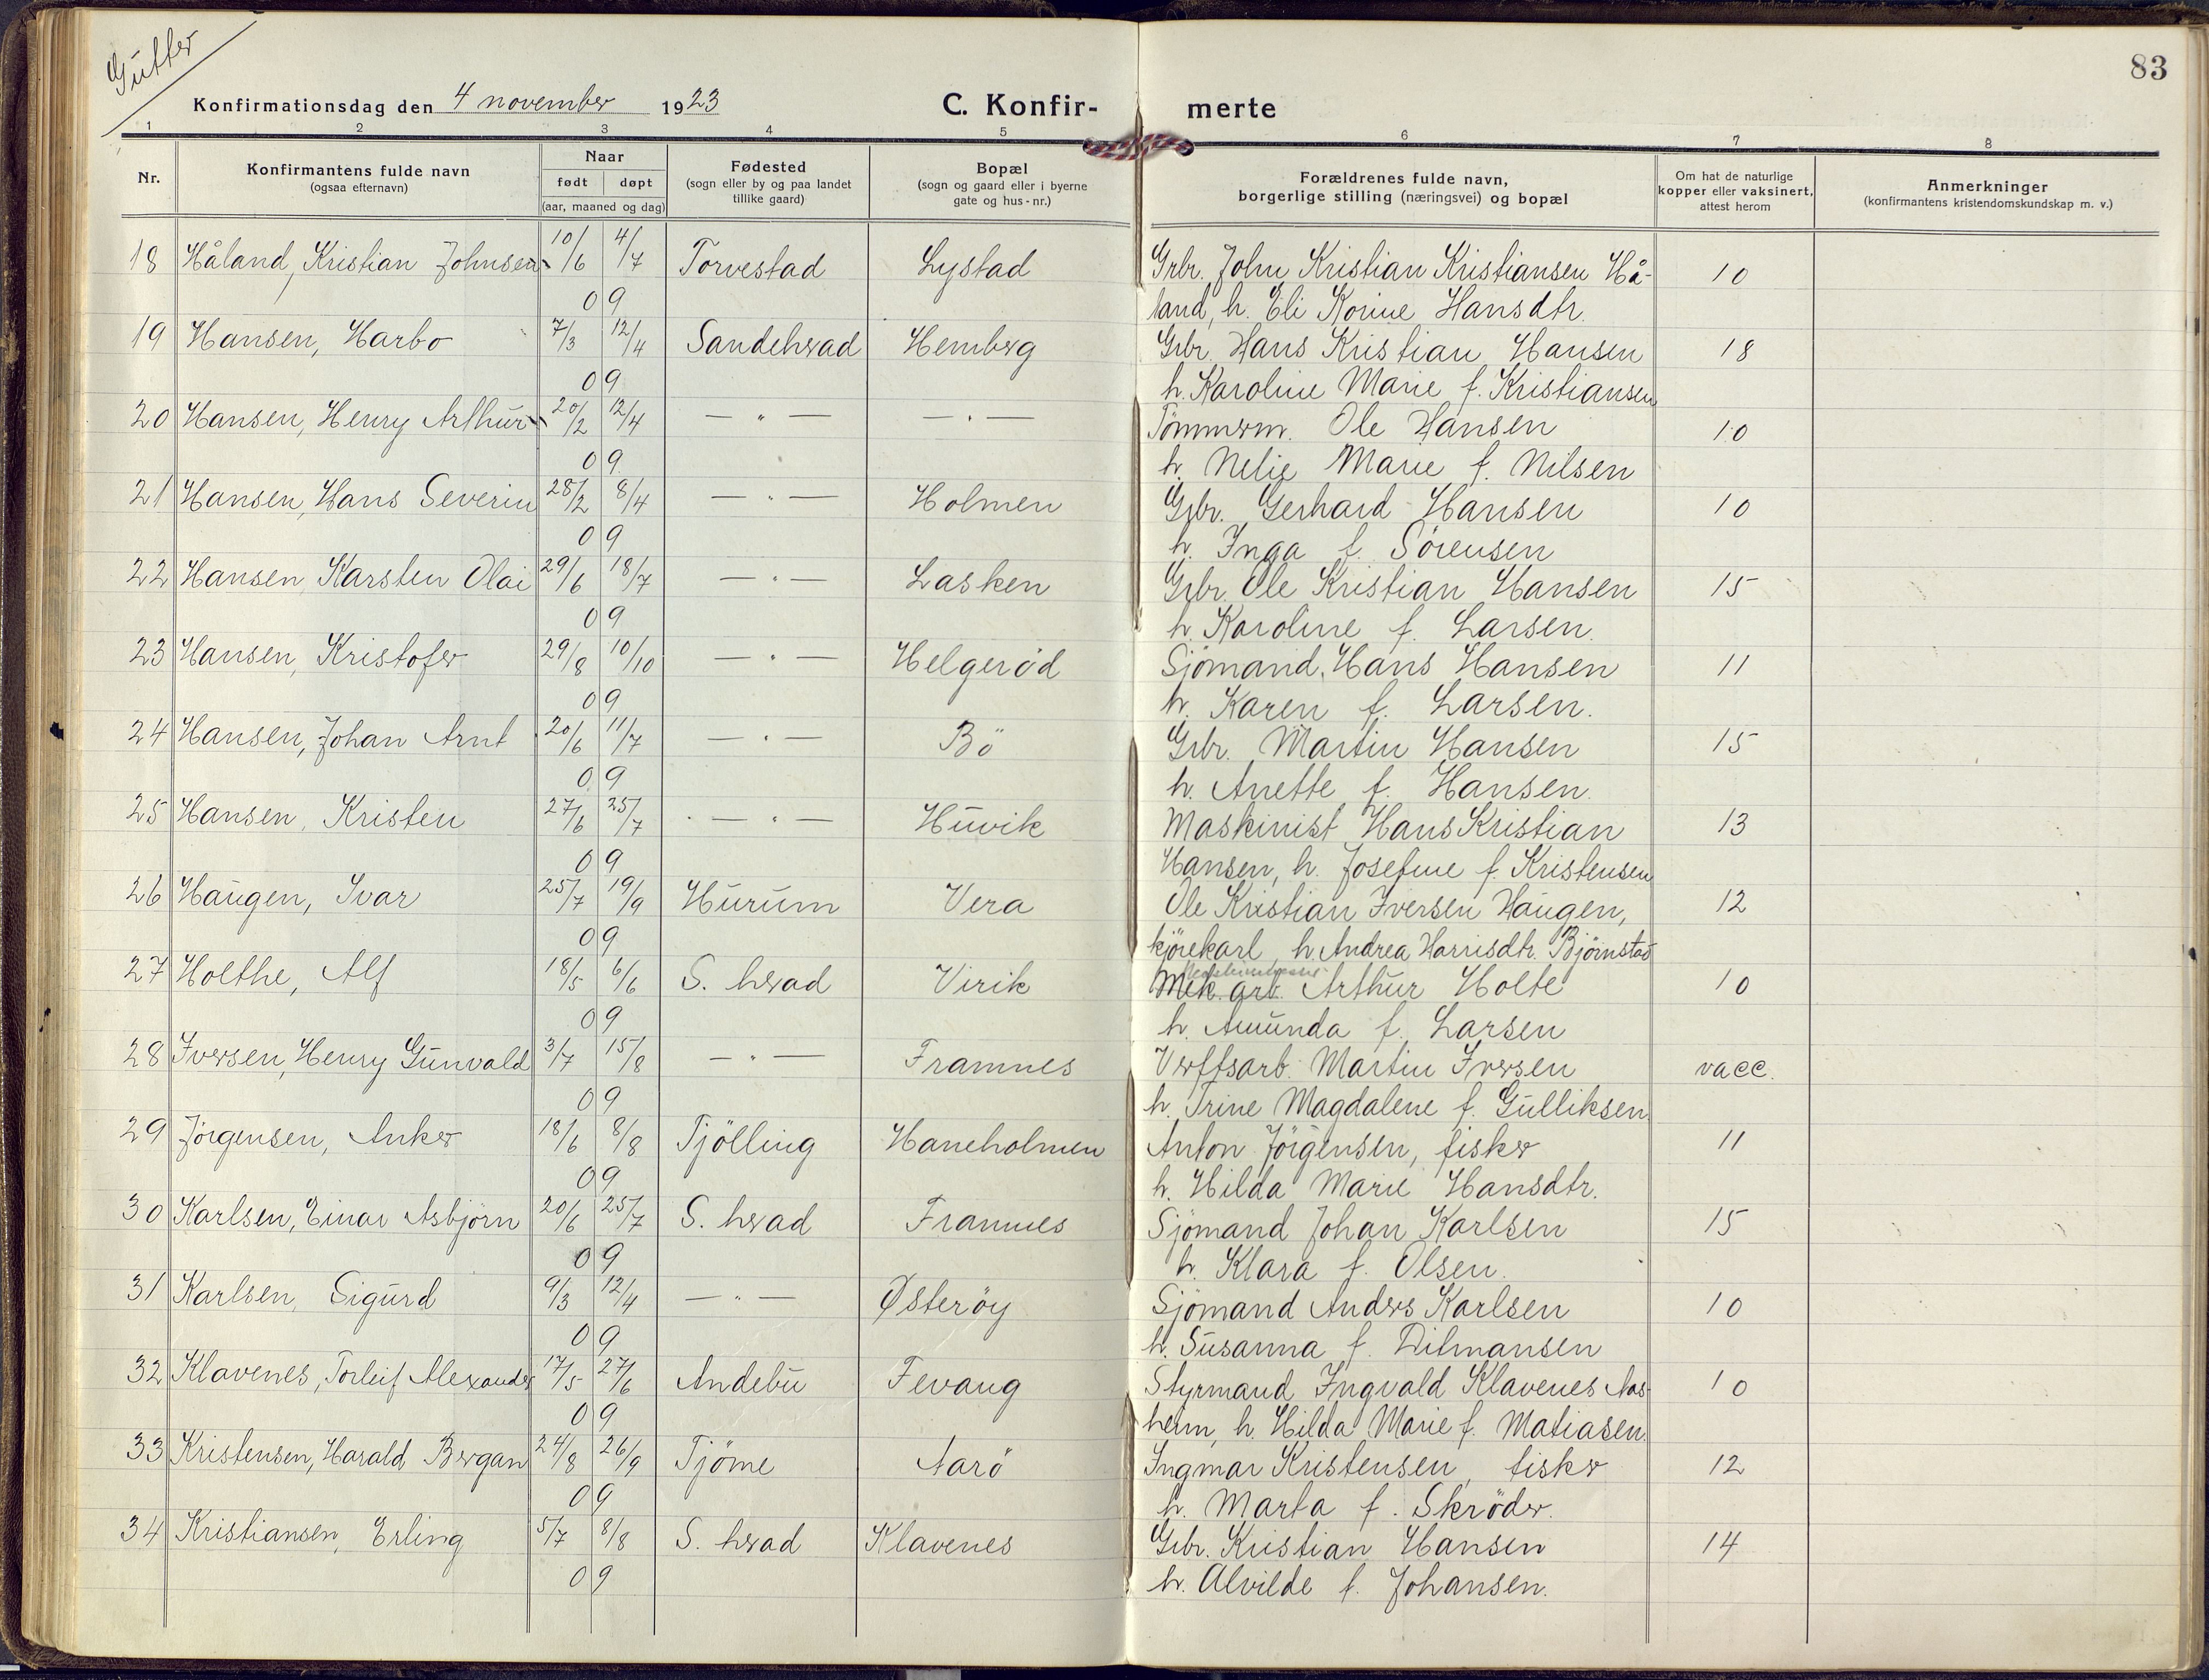 Gutter
83
Konfirmationsdag den 4 november 1923 C. Konfir- merte
1 2 3 4 5 6 7 8
Nr. Konfirmantens fulde navn (ogsaa efternavn) Naar født døpt (aar, maaned og dag) Fødested (sogn eller by og paa landet tillike gaard) Bopæl (sogn og gaard eller i byerne gate og hus-nr.) Forældrenes fulde navn, borgerlige stilling (næringsvei) og bopæl Om hat de naturlige kopper eller vaksinert, attest herom Anmerkninger (konfirmantens kristendomskundskap m. v.)
18 Håland, Kristian Johnsen 10/6 4/7 Torvestad Lystad Grbr. John Kristian Kristiansen Hå- 10
09 land, h. Eli Korine Hansdtr.
19 Hansen, Harbo 7/3 12/4 Sandehrad Hemberg Grbr. Hans Kristian Hansen 18
09 h. Karoline Marie f. Kristiansen
20 Hansen, Henry Arthur 20/2 12/4 — " — — " — Tömmerm. Ole Hansen 10
09 h. Nelie Marie f. Nilsen
21 Hansen, Hans Severin 28/2 8/4 — " — Holmen Grbr. Gerhard Hansen 10
09 h. Inga f. Sörensen
22 Hansen, Karsten Olai 29/6 18/7 — " — Lasken Grbr. Ole Kristian Hansen 15
09 h. Karoline f. Larsen.
23 Hansen, Kristofer 29/8 10/10 — " — Helgeröd Sjömand, Hans Hansen 11
09 h. Karen f. Larsen.
24 Hansen, Johan Arnt 20/6 11/7 — " — Bö Grbr. Martin Hansen 15
09 h. Anette f. Hansen.
25 Hansen, Kristen 27/6 25/7 — " — Huvik Maskinist Hans Kristian 13
09 Hansen, h. Josefine f. Kristensen
26 Haugen, Ivar 25/7 19/9 Hurum Vera Ole Kristian Iversen Haugen, 12
09 kjörekarl, h. Andrea Harrisdtr. Björnstad
27 Holthe, Alf 18/5 6/6 S. hrad Virik Mek. arb. Arthur Holte 10
09 h. Amunda f. Larsen
28 Iversen, Henry Gunvald 3/7 15/8 — " — Framnes Verftsarb. Martin Iversen vacc.
09 h. Trine Magdalene f. Gulliksen
29 Jörgensen, Anker 18/6 8/8 Tjölling Haneholmen Anton Jörgensen, fisker 11
09 h. Hilda Marie Hansdtr.
30 Karlsen, Einar Asbjörn 20/6 25/7 S. hrad Framnes Sjömand Johan Karlsen 15
09 h. Klara f. Olsen.
31 Karlsen, Sigurd 9/3 12/4 — " — Østeröy Sjömand Anders Karlsen 10
09 h. Susanna f. Ditmansen
32 Klavenes, Torleif Alexander 17/5 27/6 Andebu Fevang Styrmand Ingvald Klavenes Aas- 10
09 heim, h. Hilda Marie f. Matiasen.
33 Kristensen, Harald Bergan 24/8 26/9 Tjöme Aarö Ingmar Kristensen, fisker 12
09 h. Marta f. Skröder.
34 Kristiansen, Erling 5/7 8/8 S. hrad Klavenes Grbr. Kristian Hansen 14
09 h. Alvilde f. Johansen.